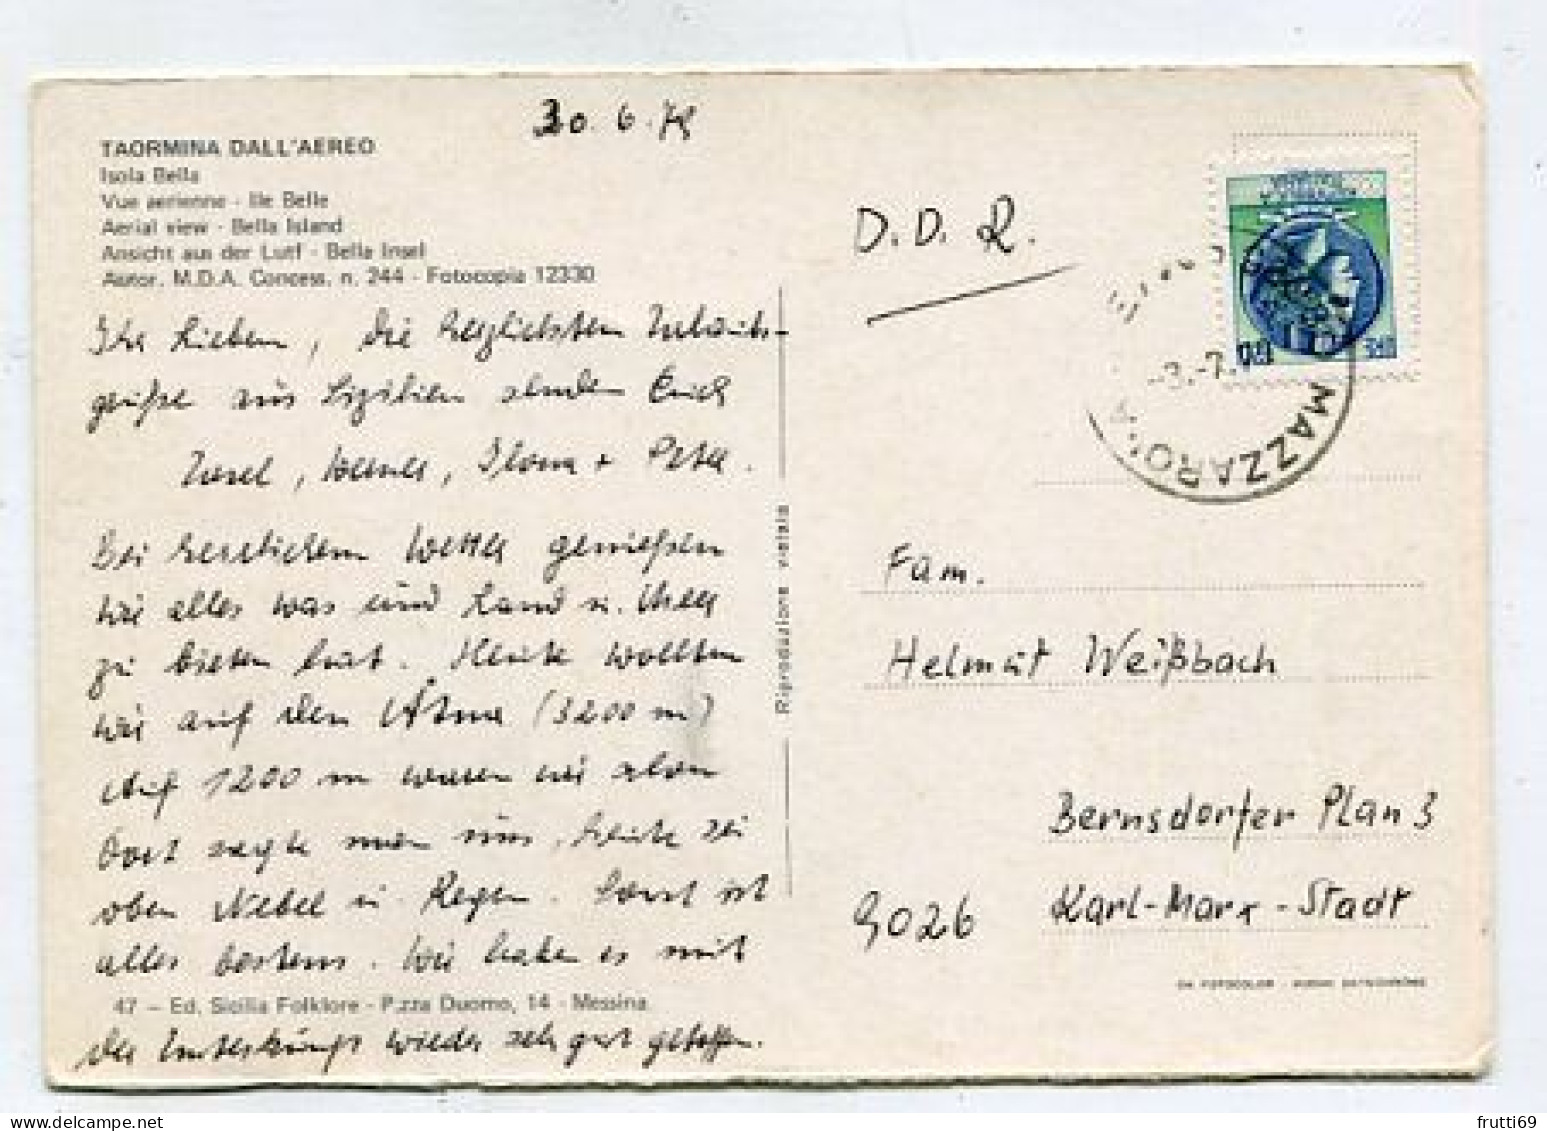 30.6.78
TAORMINA DALL'AEREO
Isola Bella
Vue aerienne - Ile Belle
Aerial view - Bella Island
Ansicht aus der Lutf - Bella Insel
Autor. M.D.A. Concess. n. 244 - Fotocopia 12330
Ihr Lieben, die herzlichsten Urlaubs-
grüße aus Sizilien senden Euch
Ursel, Werner, Ilona + Peter.
Bei herrlichem Wetter genießen
wir alles was uns Land u. Meer
zu bieten hat. Heute wollten
wir auf den Ätna (3200 m)
Auf 1200 m waren wir schon
Dort sagte man uns, heute sei
oben Nebel u. Regen. Sonst ist
alles bestens. Wir haben es mit
47 - Ed. Sicilia Folklore - P.zza Duomo, 14 - Messina
der Unterkunft wieder sehr gut getroffen.
Riproduzione vietata
D.D.R.
MAZZARO'
-3.-7.
Fam.
Helmut Weißbach
Bernsdorfer Plan 3
9026 Karl-Marx-Stadt
frutti69